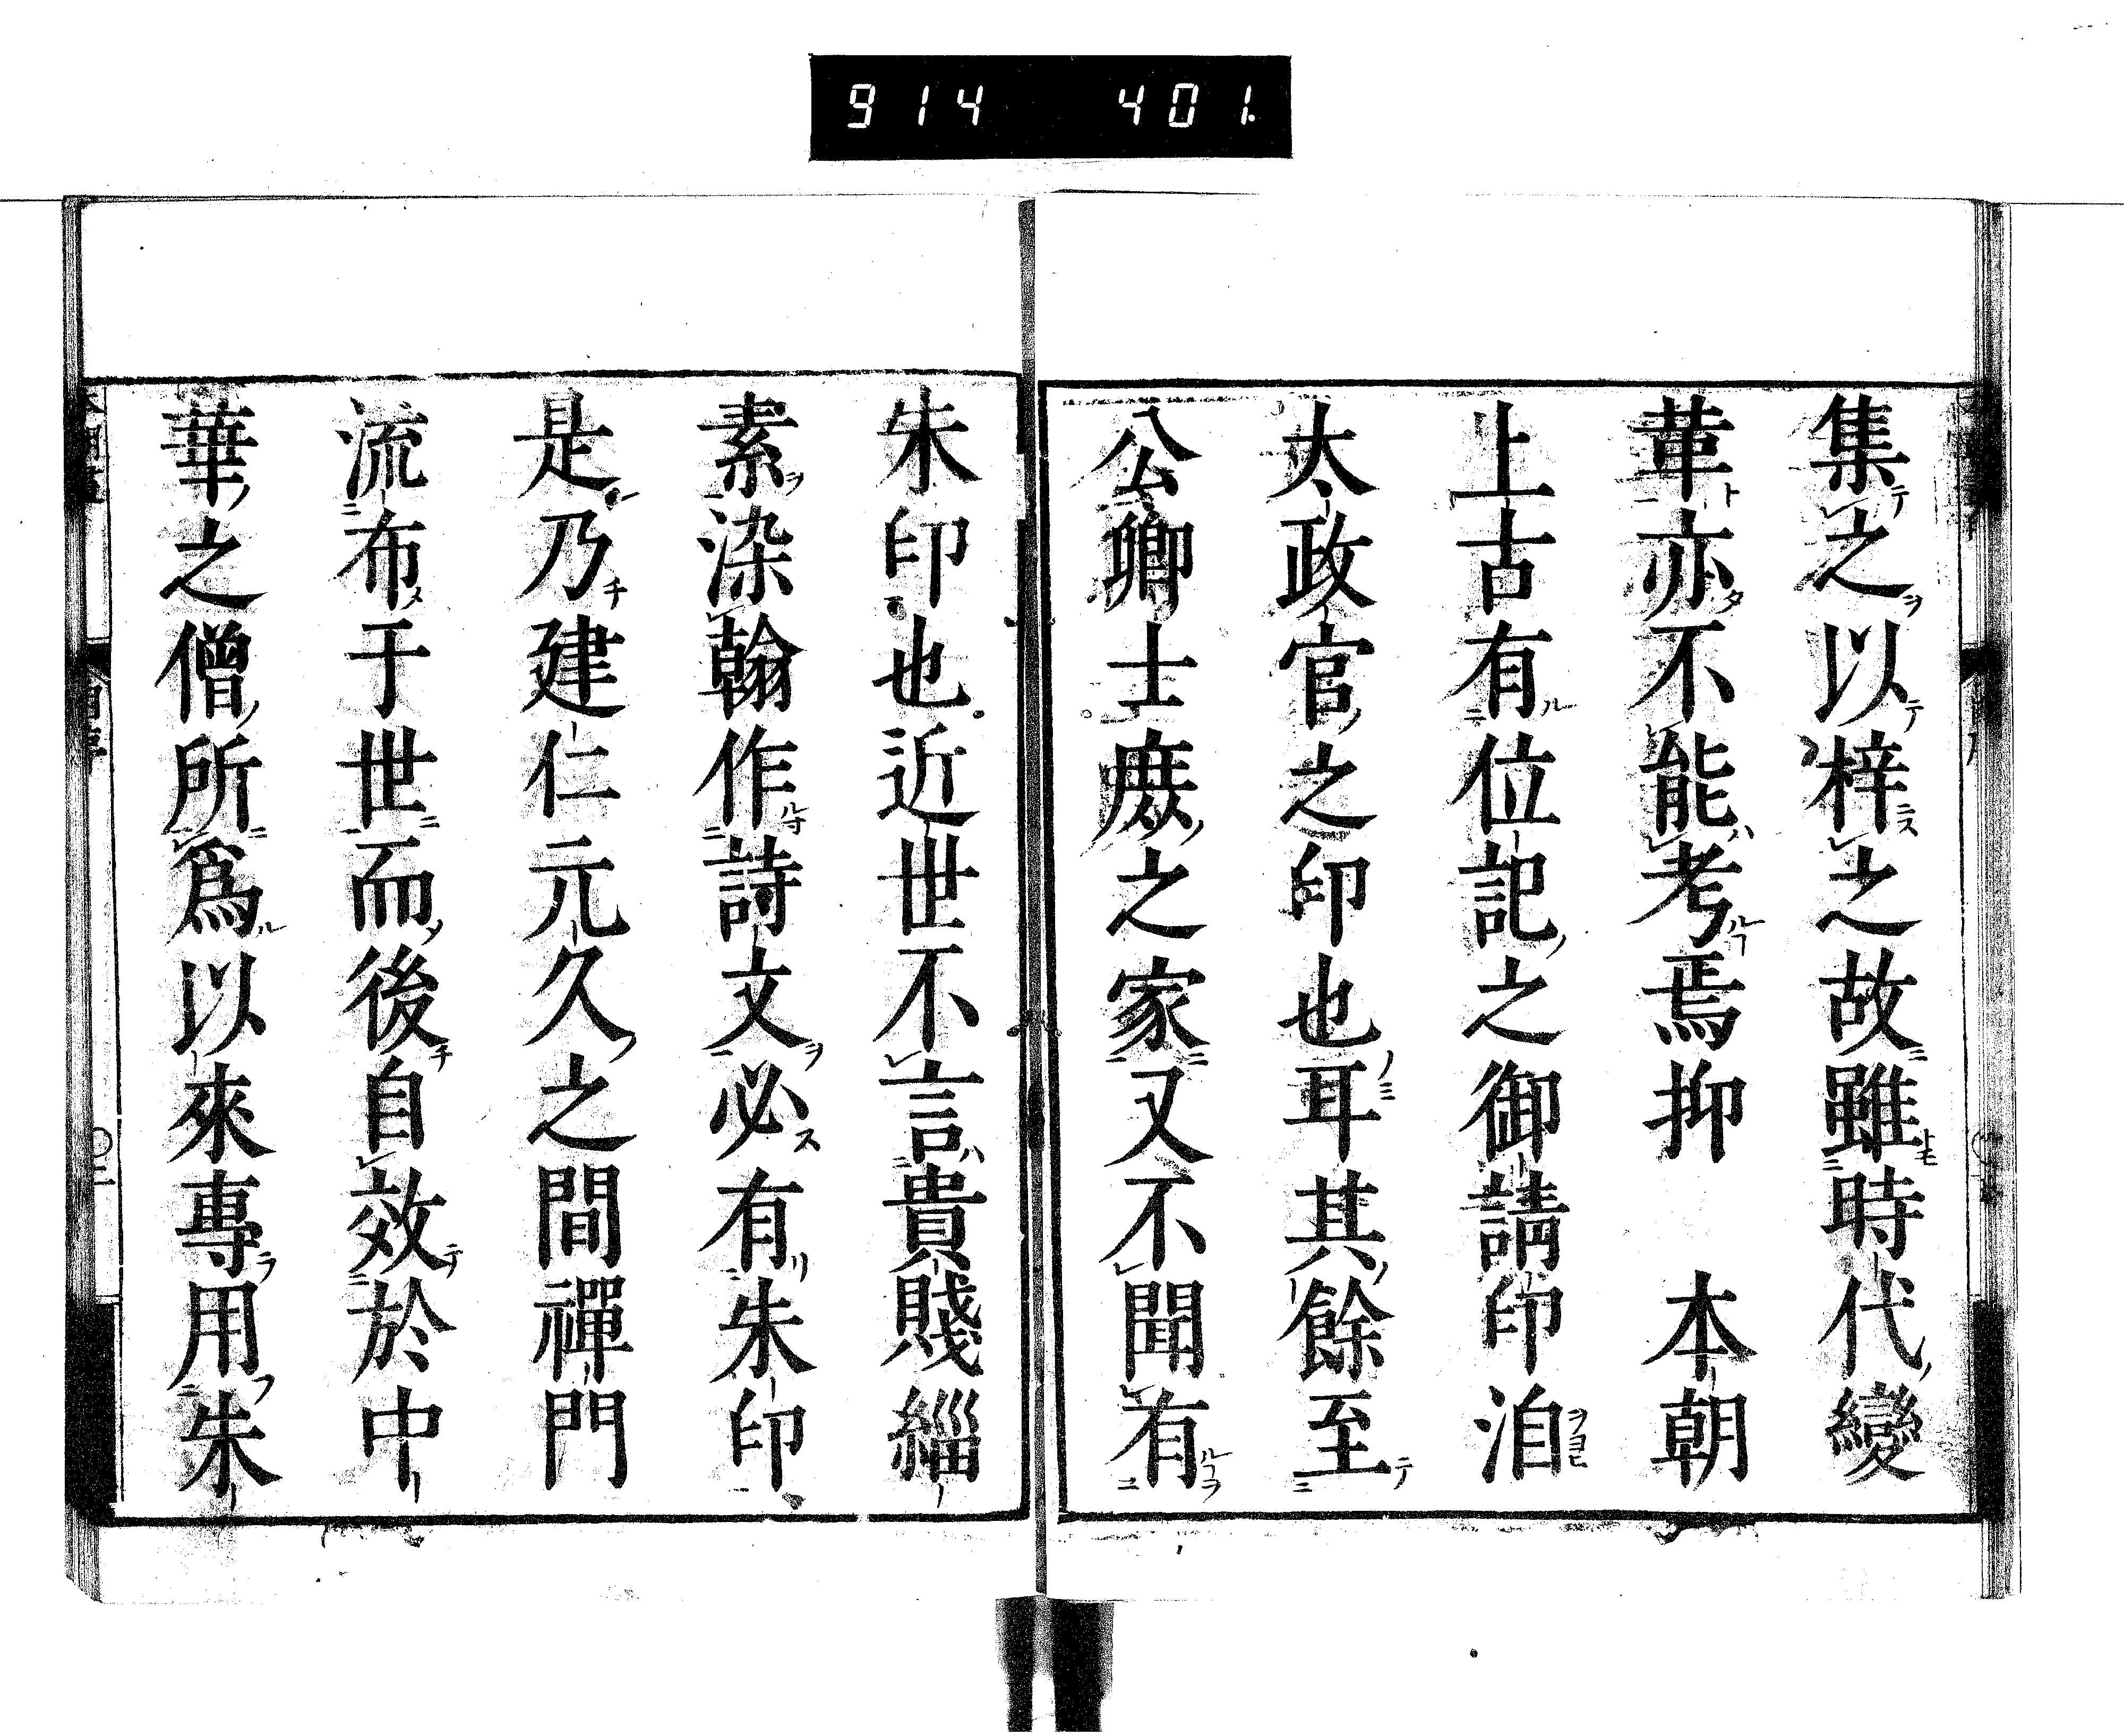 914 401
集之以梓之故雖時代變
革亦不能考焉抑　本朝
上古有位記之御請印洎
太政官之印也耳其餘至
公卿士庶之家又不聞有
朱印也近世不言貴賤緇
素染翰作詩文必有朱印
是乃建仁元久之間禪門
流布于世而後自效於中
華之僧所爲以來專用朱